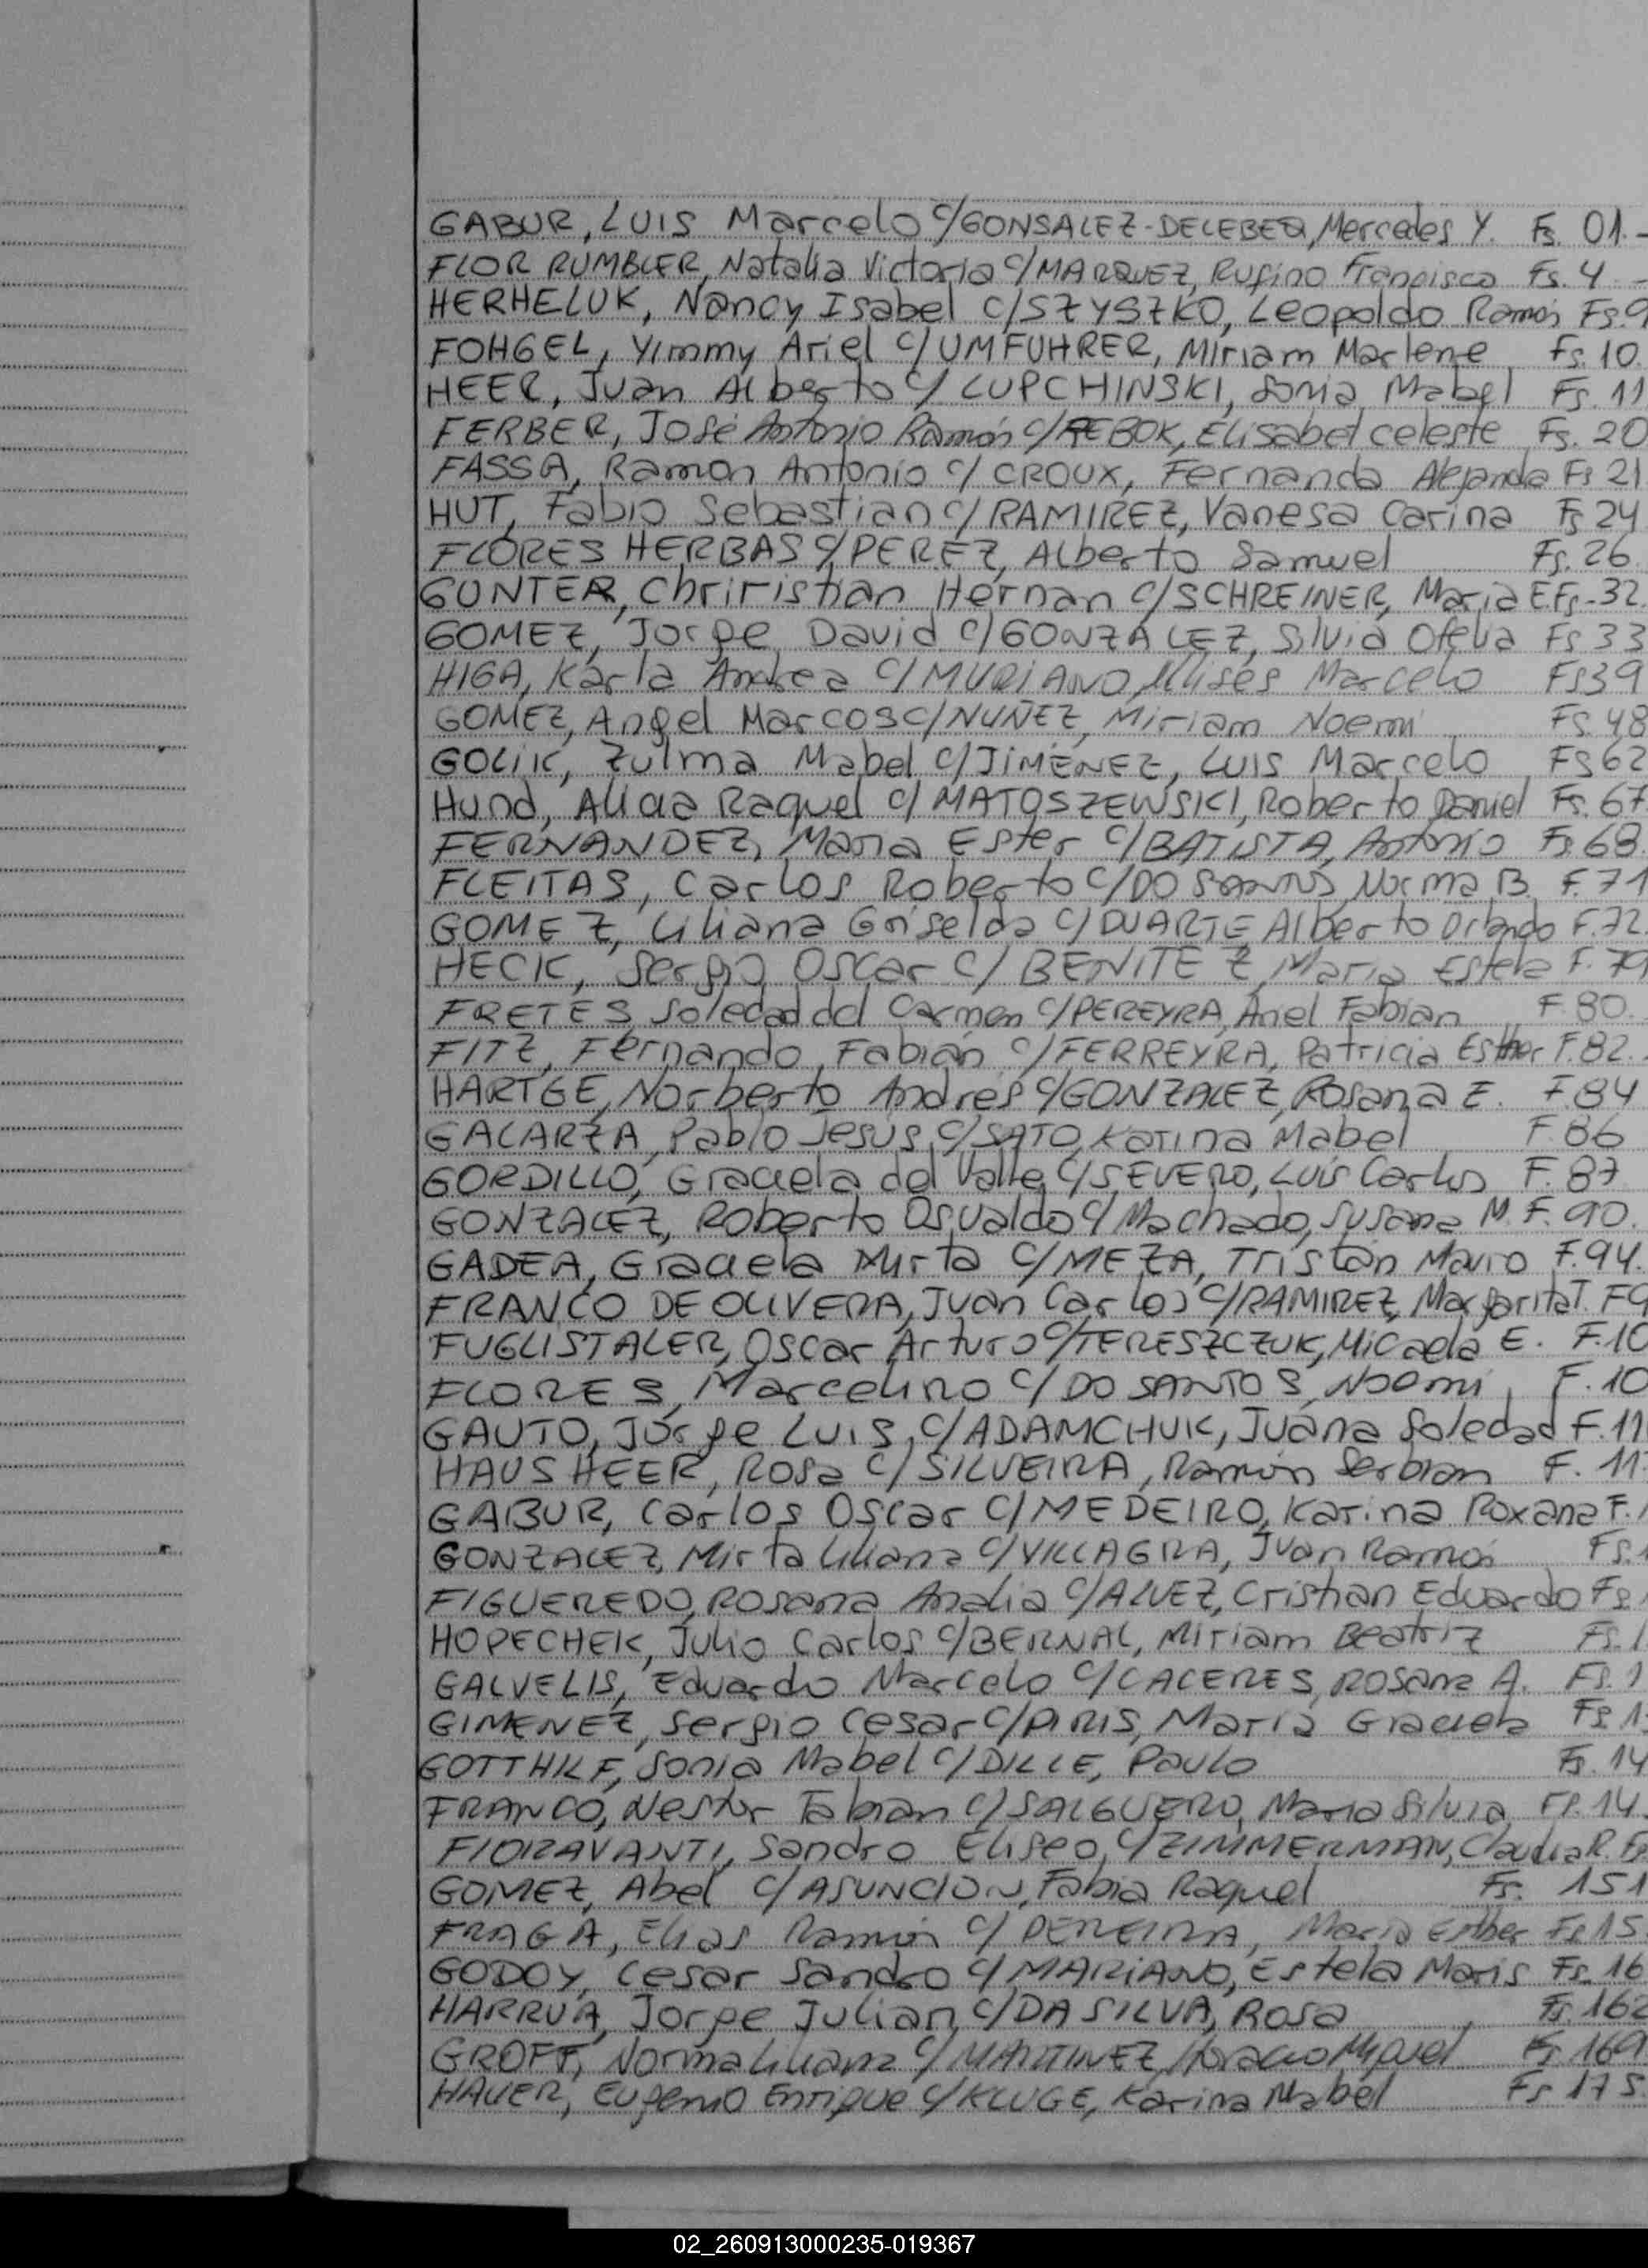 GABUR, LUIS Marcelo c/GONSALEZ-DELEBEQ, Mercedes Y. Fs. 01.-
FLOR RUMBLER, Natalia Victoria c/MARQUEZ, Rufino Francisco Fs. 4.-
HERHELUK, Nancy Isabel c/SZYSZKO, Leopoldo Ramón Fs. 9
FOHGEL, Yimmy Ariel c/UMFUHRER, Miriam Marlene Fs. 10.
HEER, Juan Alberto c/ LUPCHINSKI, Sonia Mabel Fs. 11
FERBER, José Antonio Ramón c/ Elisabet Celeste Fs. 20
FASSA, Ramon Antonio c/ CROUX, Fernanda Alejanda Fs 21
HUT, Fabio Sebastian c/ RAMIREZ, Vanesa Carina Fs 24
FLORES HERBAS c/PEREZ, Alberto Samuel Fs. 26.
GUNTER, Chriristian Hernan c/SCHREINER, Maria E. Fs-32.
GOMEZ, Jorge David c/GONZALEZ, Silvia Ofelia Fs 33
HIGA, Karla Andrea c/MURIANO, Ulises Marcelo Fs 39
GOMEZ, Angel Marcos c/NUÑEZ, Miriam Noemi Fs. 48
GOLIK, Zulma Mabel c/JIMÉNEZ, LUIS Marcelo Fs 62
Hund, Alicia Raquel c/ MATOSZEWSKI, Roberto Daniel Fs. 67
FERNANDEZ, Maria Ester c/BATISTA, Antonio Fs 68.
FLEITAS, Carlos Roberto c/DO SANTOS, Norma B. F. 71
GOMEZ, Liliana Griselda c/ DUARTE Alberto Orlando F. 72.
HECK, Sergio Oscar c/ BENITEZ, Maria Estela F. 79
FRETES, Soledad del Carmen c/PEREYRA, Ariel Fabian F. 80.
FITZ, Fernando Fabián c/FERREYRA, Patricia Esther F. 82.
HARTGE, Norberto Andres c/GONZALEZ, Rosana E. F. 84
GALARZA, Pablo Jesús c/SATO, Karina Mabel F. 86
GORDILLO, Graciela del Valle c/SEVERO, Luís Carlos F. 87
GONZALEZ, Roberto Osvaldo c/ Machado, Susana M. F. 90.
GADEA, Graciela Mirta c/MEZA, Tristán Mario F. 94.
FRANCO DE OLIVERA, Juan Carlos c/RAMIREZ, Margarita T. F 9
FUGLISTALER, Oscar Arturo c/TERESZCZUK, Micaela E. F. 10
FLORES, Marcelino c/DO SANTOS, Noemi F. 10
GAUTO, Jorge Luis, c/ADAMCHUK, Juana Soledad F. 11
HAUSHEER, Rosa c/SILVEIRA, Ramón Serbian F. 11
GABUR, Carlos Oscar c/MEDEIRO, Karina Roxana F. 1
GONZALEZ, Mirta Liliana c/VILLAGRA, Juan Ramón Fs. 1
FIGUEREDO, Rosana Analia c/ALVEZ, Cristhian Eduardo Fs.
HOPECHEK, Julio Carlos c/BERNAL, Miriam Beatriz Fs. 1
GALVELIS, Eduardo Marcelo c/CACERES, Rosana A. Fs. 1
GIMENEZ, Sergio Cesar c/PIRIS, Maria Graciela Fs 1
GOTTHILF, Sonia Mabel c/DILLE, Paulo Fs. 14
FRANCO, Nestor Fabian c/SALGUERO, Maria Silvia Fs. 14
FIORAVANTI, Sandro Eliseo, c/ZIMMERMAN, Claudia R. Fs
GOMEZ, Abel c/ASUNCION, Fabia Raquel Fs. 151
FRAGA, Elias Ramón c/ PEREIRA, María Esther Fs 15
GODOY, Cesar Sandro c/MARIANO, Estela Maris Fs. 16
HARRUA, Jorge Julian c/DA SILVA, Rosa Fs. 162
GROFF, Norma Liliana c/MARTINEZ, Horacio Miguel Fs 169
HAUER, Eugenio Enrique c/KLUGE, Karina Mabel Fs 175
02_260913000235-019367